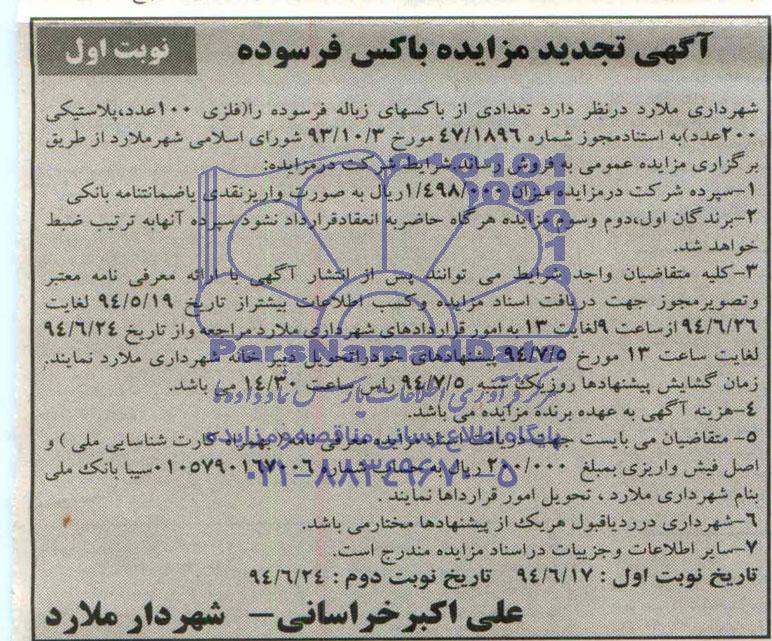 آگهی تجدید مزایده باکس فرسوده
نوبت اول
شهرداری ملارد درنظر دارد تعدادی از باکسهای زباله فرسوده را(فلزی ۱۰۰عدد،پلاستیکی
۲۰۰عدد)به استنادمجوز شماره ٤٧/١٨٩٦ مورخ ۹۳/۱۰/۳ شورای اسلامی شهرملارد از طریق
برگزاری مزایده عمومی به فروش رساند.شرایط شرکت درمزایده:
۱-سپرده شرکت درمزایده میزان ۱/٤۹۸/۰۰۰ریال به صورت واریزنقدی یاضمانتنامه بانکی
۲-برندگان اول،دوم وسوم مزایده هرگاه حاضربه انعقادقرارداد نشود سپرده آنهابه ترتیب ضبط
خواهد شد.
۳-کلیه متقاضیان واجد شرایط می توانند پس از انتشار آگهی با ارائه معرفی نامه معتبر
وتصویرمجوز جهت دریافت اسناد مزایده وکسب اطلاعات بیشتراز تاریخ ۹٤/٥/۱۹ لغایت
۹٤/٦/۲٦ ازساعت ۹لغایت ۱۳ به امور قراردادهای شهرداری ملارد مراجعه واز تاریخ ۹٤/٦/۲٤
لغایت ساعت ۱۳ مورخ ۹٤/۷/٥ پیشنهادهای خودراتحویل دبیر خانه شهرداری ملارد نمایند.
زمان گشایش پیشنهادها روزیک شنبه ۹٤/۷/٥ راس ساعت ۱٤/۳۰ می باشد.
٤-هزینه آگهی به عهده برنده مزایده می باشد.
٥- متقاضیان می بایست جهت دریافت اسناد مزایده معرفی نامه( بهمراه کارت شناسایی ملی ) و
اصل فیش واریزی بمبلغ ۲۰۰/۰۰۰ ریال به حساب شماره ۰۱۰٥۷۹۰۱٦۷۰۰٦سیبا بانک ملی
بنام شهرداری ملارد ، تحویل امور قراردادها نمایند .
٦-شهرداری درردیاقبول هریک از پیشنهادها مختارمی باشد.
۷-سایر اطلاعات وجزییات دراسناد مزایده مندرج است.
تاریخ نوبت اول : ۹٤/٦/۱۷ تاریخ نوبت دوم : ۹٤/٦/۲٤
علی اکبرخراسانی- شهردار ملارد
ParsNamadData
مرکز فرآوری اطلاعات پارس نماد داده ها
پایگاه اطلاع رسانی مناقصه و مزایده
۰۲۱-۸۸۳٤۹٦۷۰-٥